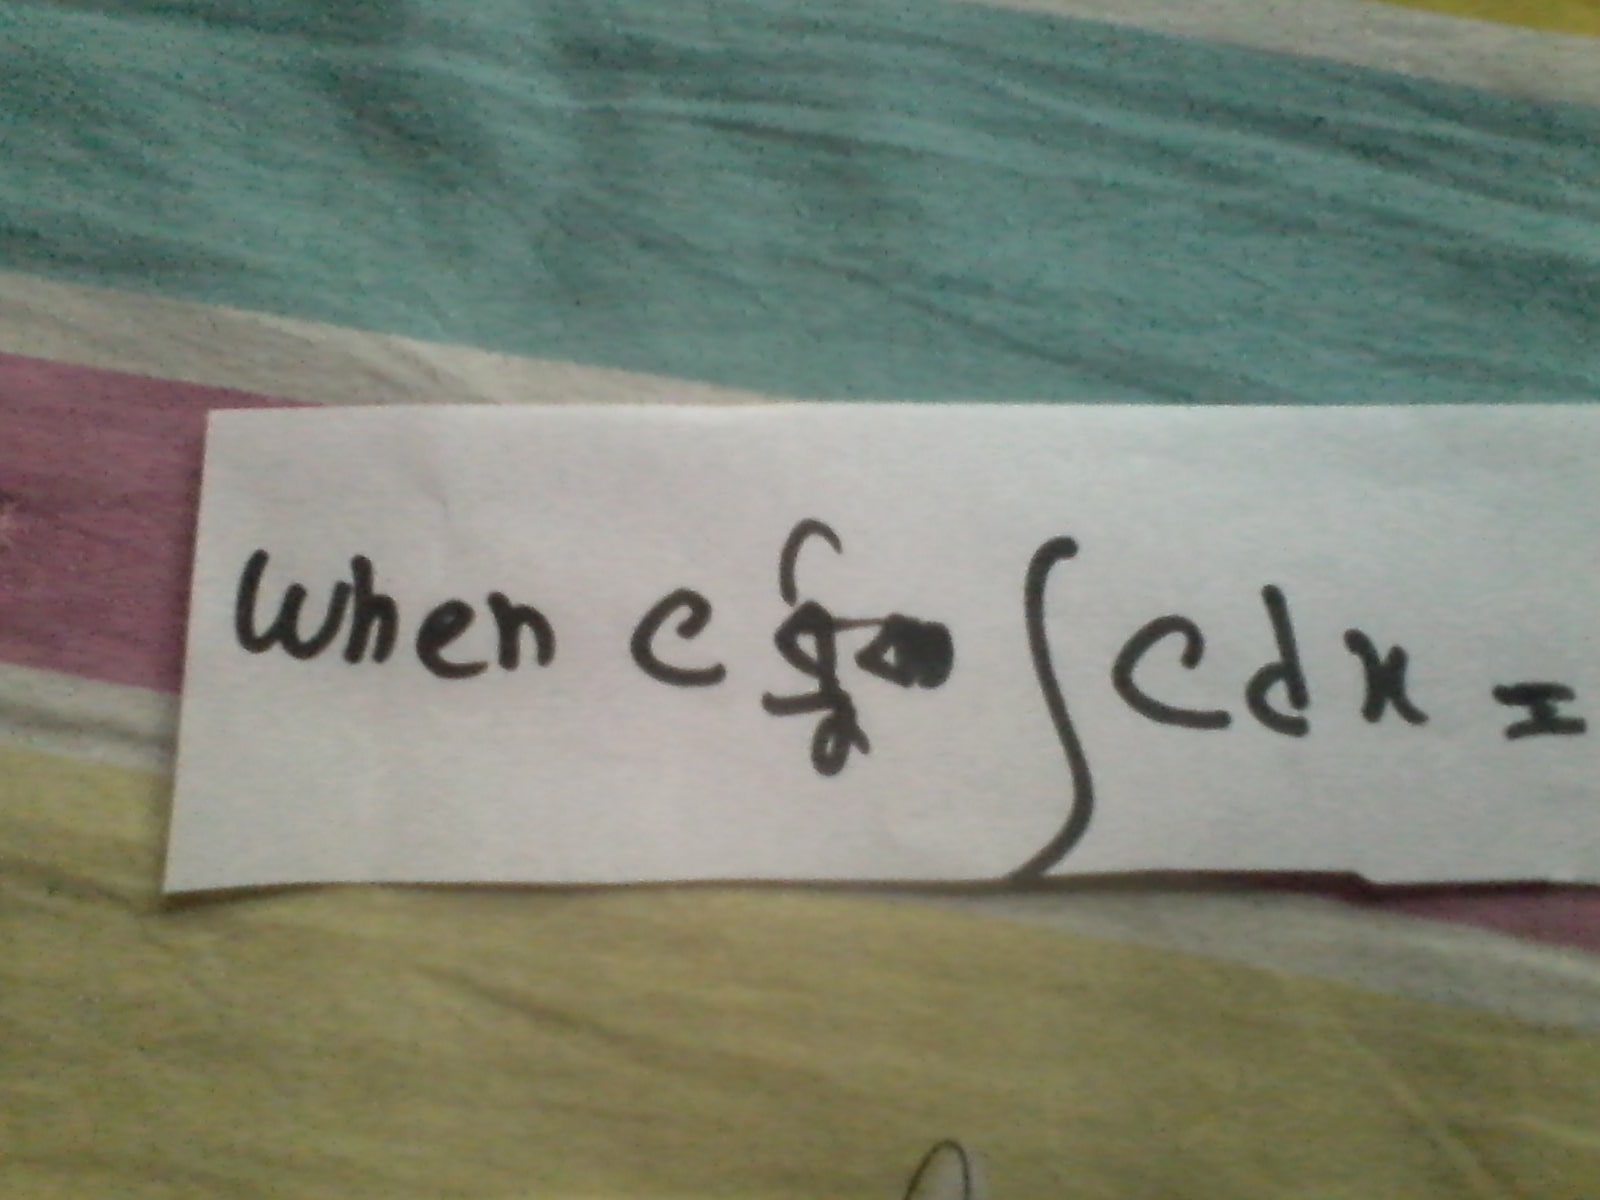 When C ∫ C dx =